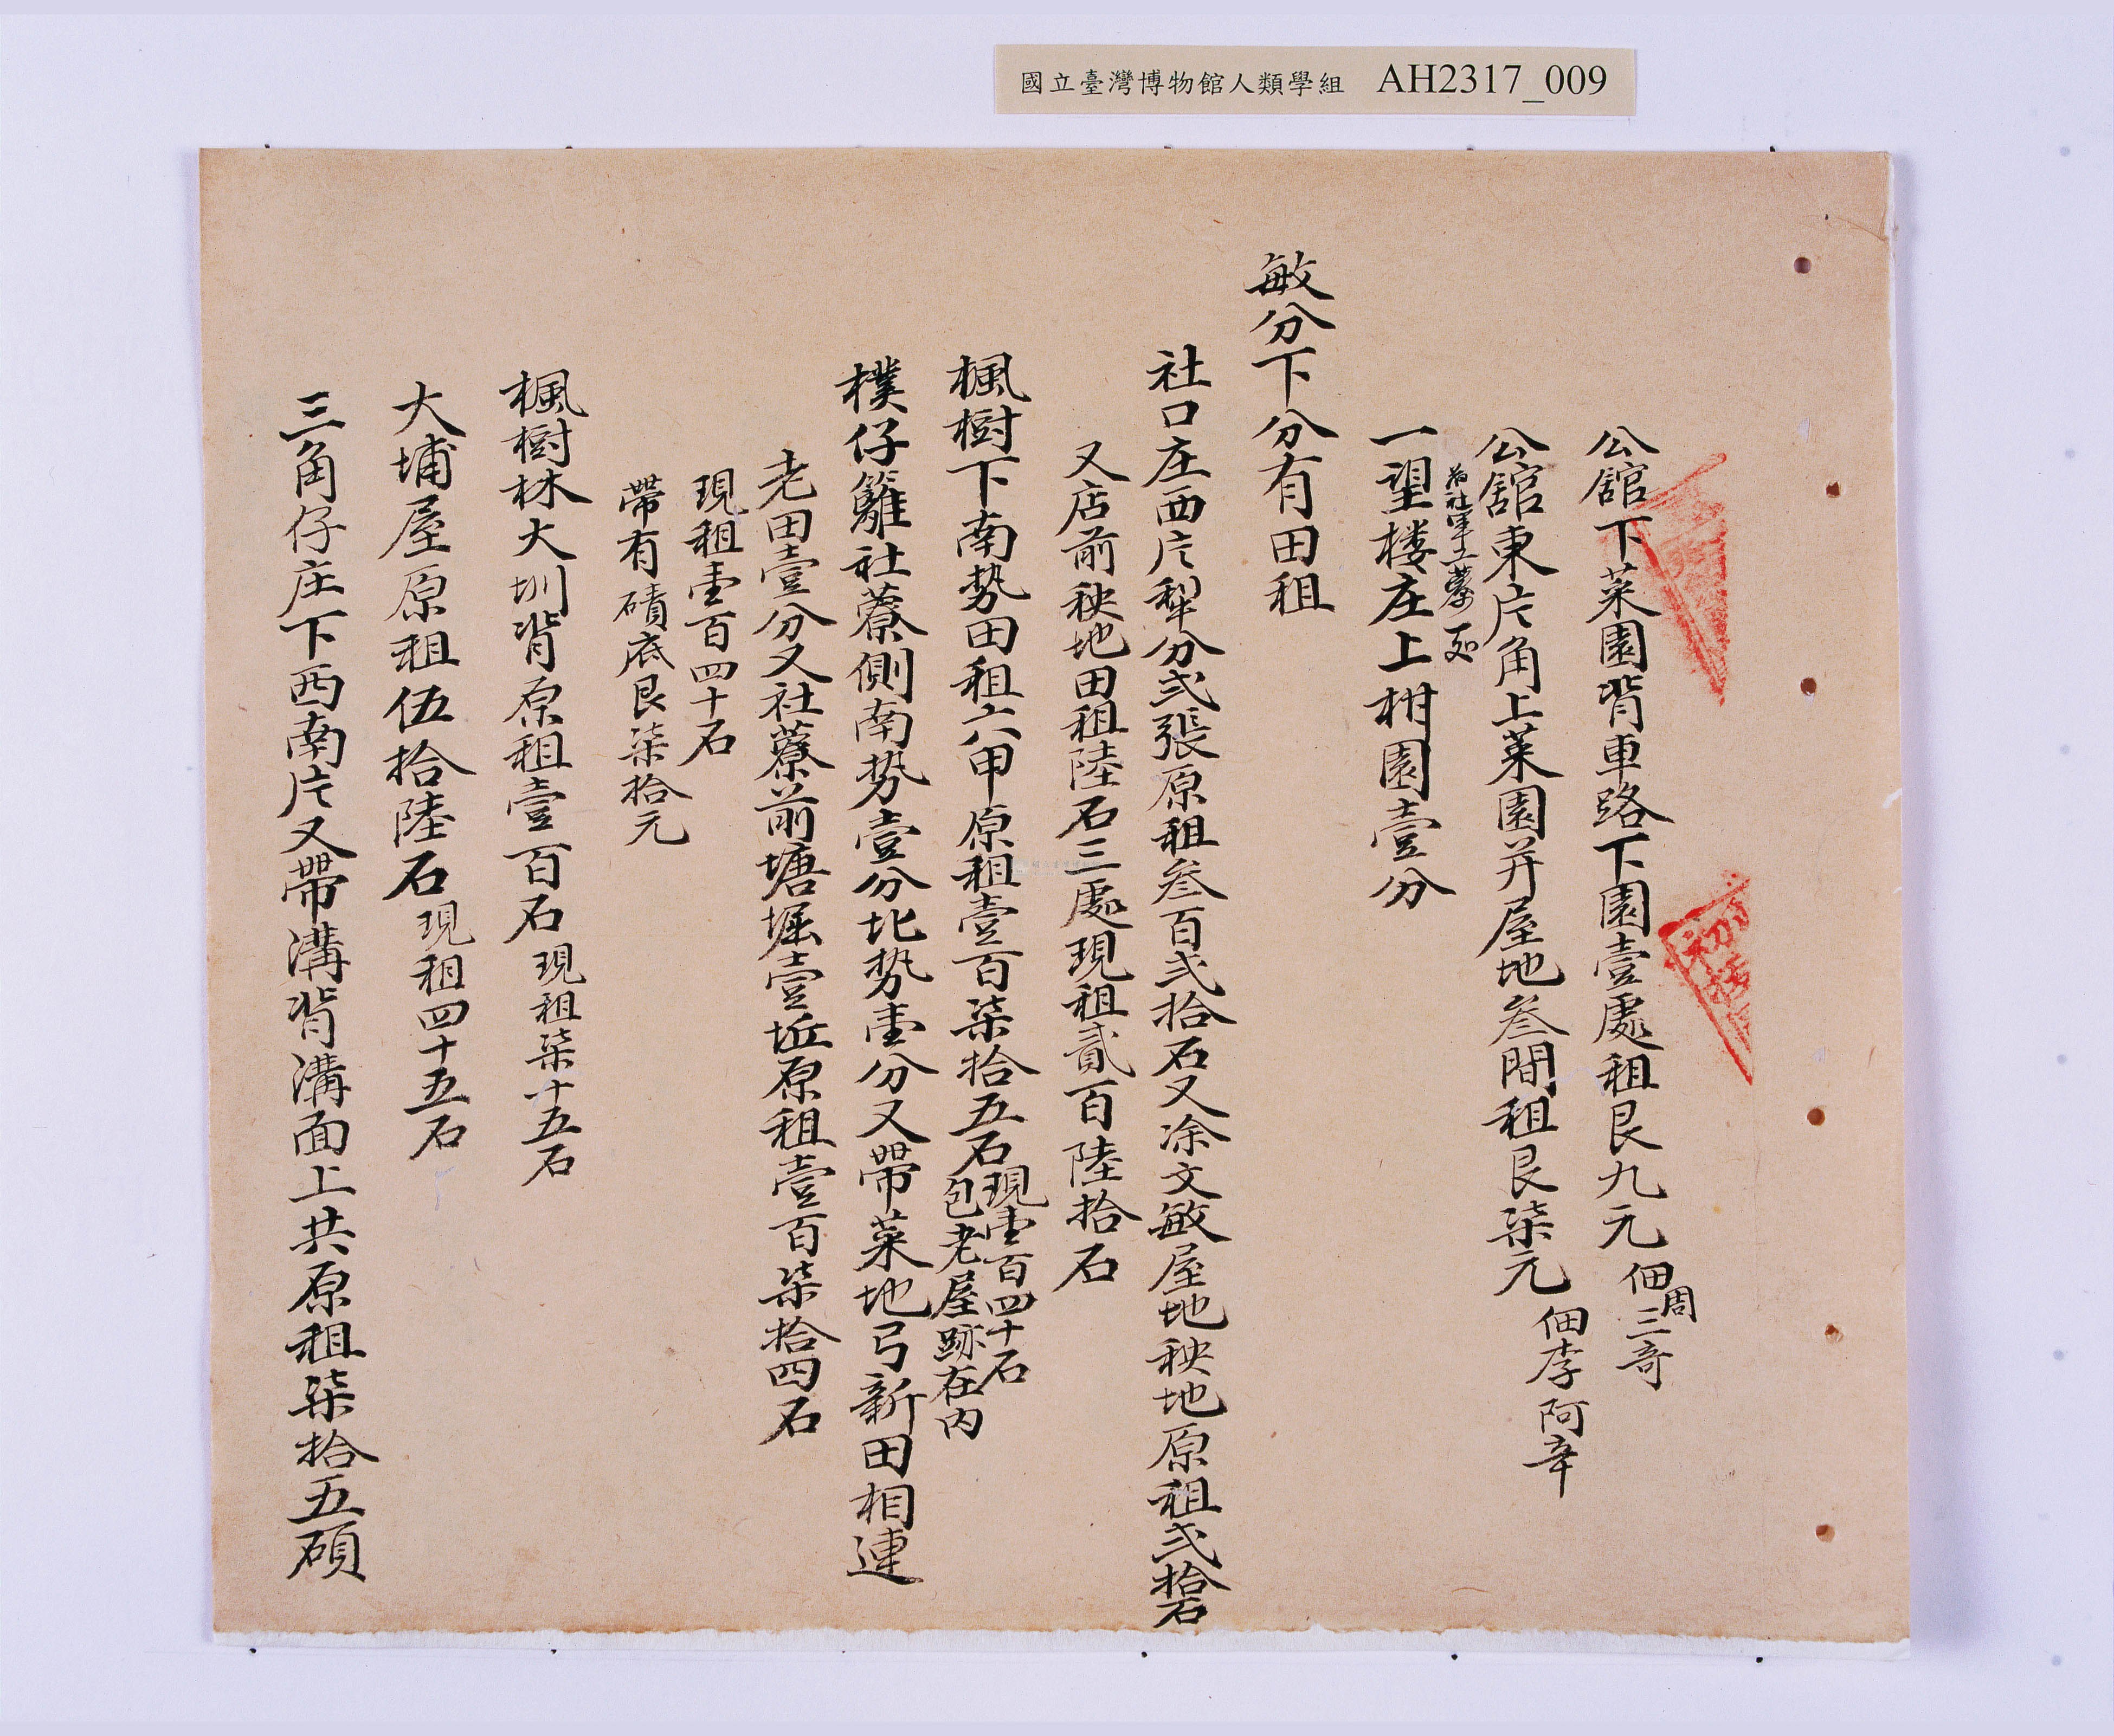 國立臺灣博物館人類學組 AH2317_009
公舘下菜園背車路下園壹處租艮九元 佃周三哥
公舘東片角上菜園并屋地叁間租艮柒元 佃李阿辛
社軍工藔一処
一望楼庄上柑園壹分
敏分下分有田租
社口庄西片犂分弍張原租叁百弍拾石又凃文敏屋地秧地原租弍拾石
又店前秧地田租陸石三處現租貳百陸拾石
楓樹下南势田租六甲原租壹百柒拾五石
現壹百四十石
包老屋跡在内
樸仔籬社藔側南势壹分北势壹分又帶菜地弓新田相連
老田壹分又社藔前塘堀壹坵原租壹百柒拾四石
現租壹百四十石
帶有磧底艮柒拾元
楓樹林大圳背原租壹百石 現租柒十五石
大埔屋原租伍拾陸石 現租四十五石
三角仔庄下西南片又帶溝背溝面上共原租柒拾五碩